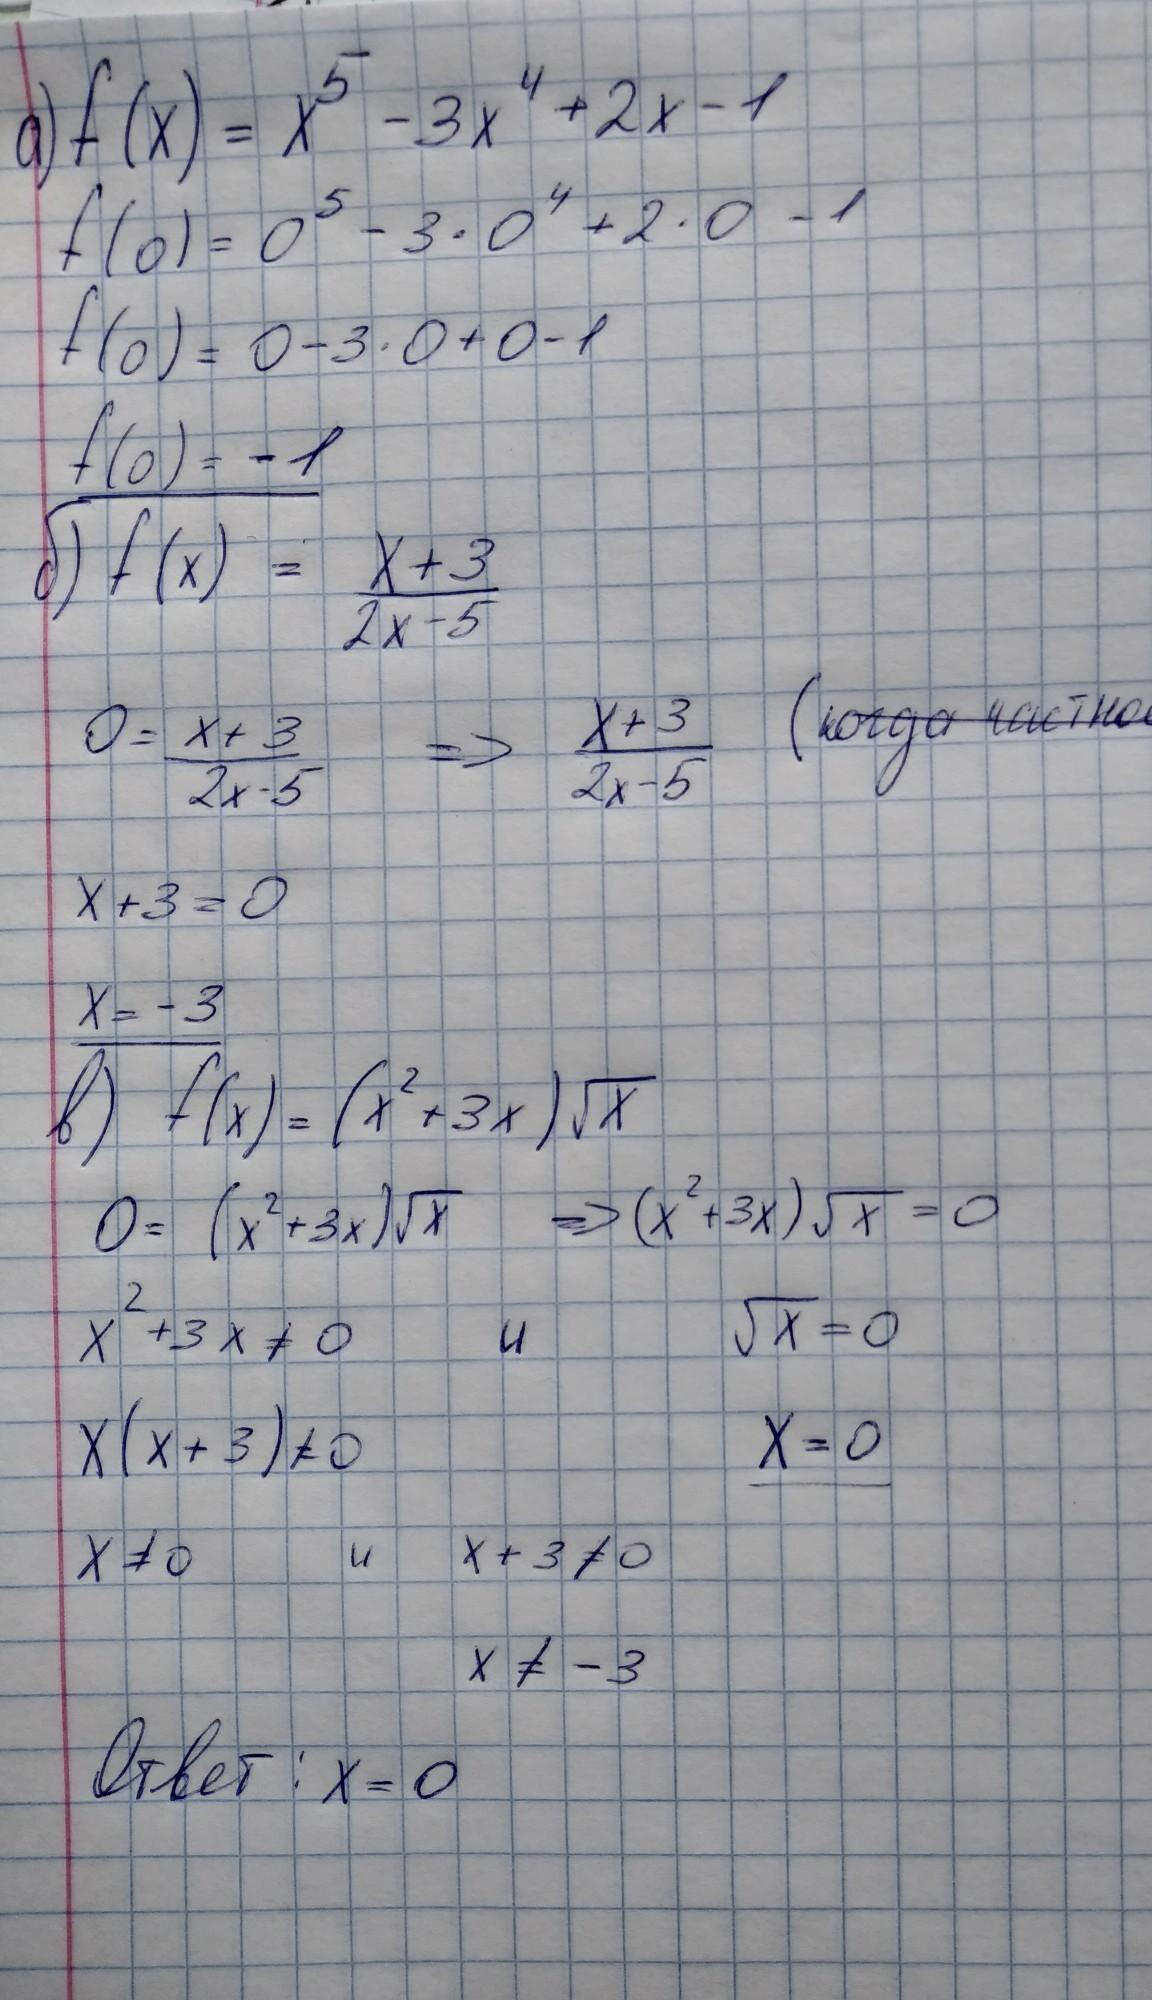 а) f(x) = x⁵ - 3x⁴ + 2x - 1
f(0) = 0⁵ - 3·0⁴ + 2·0 - 1
f(0) = 0 - 3·0 + 0 - 1
f(0) = -1
б) f(x) = (x+3)/(2x-5)
0 = (x+3)/(2x-5) => (x+3)/(2x-5) (когда
x+3=0
x=-3
в) f(x) = (x²+3x)√x
0 = (x²+3x)√x => (x²+3x)√x = 0
x²+3x≠0 и √x=0
x(x+3)≠0 x=0
x≠0 и x+3≠0
x≠-3
Ответ: x=0